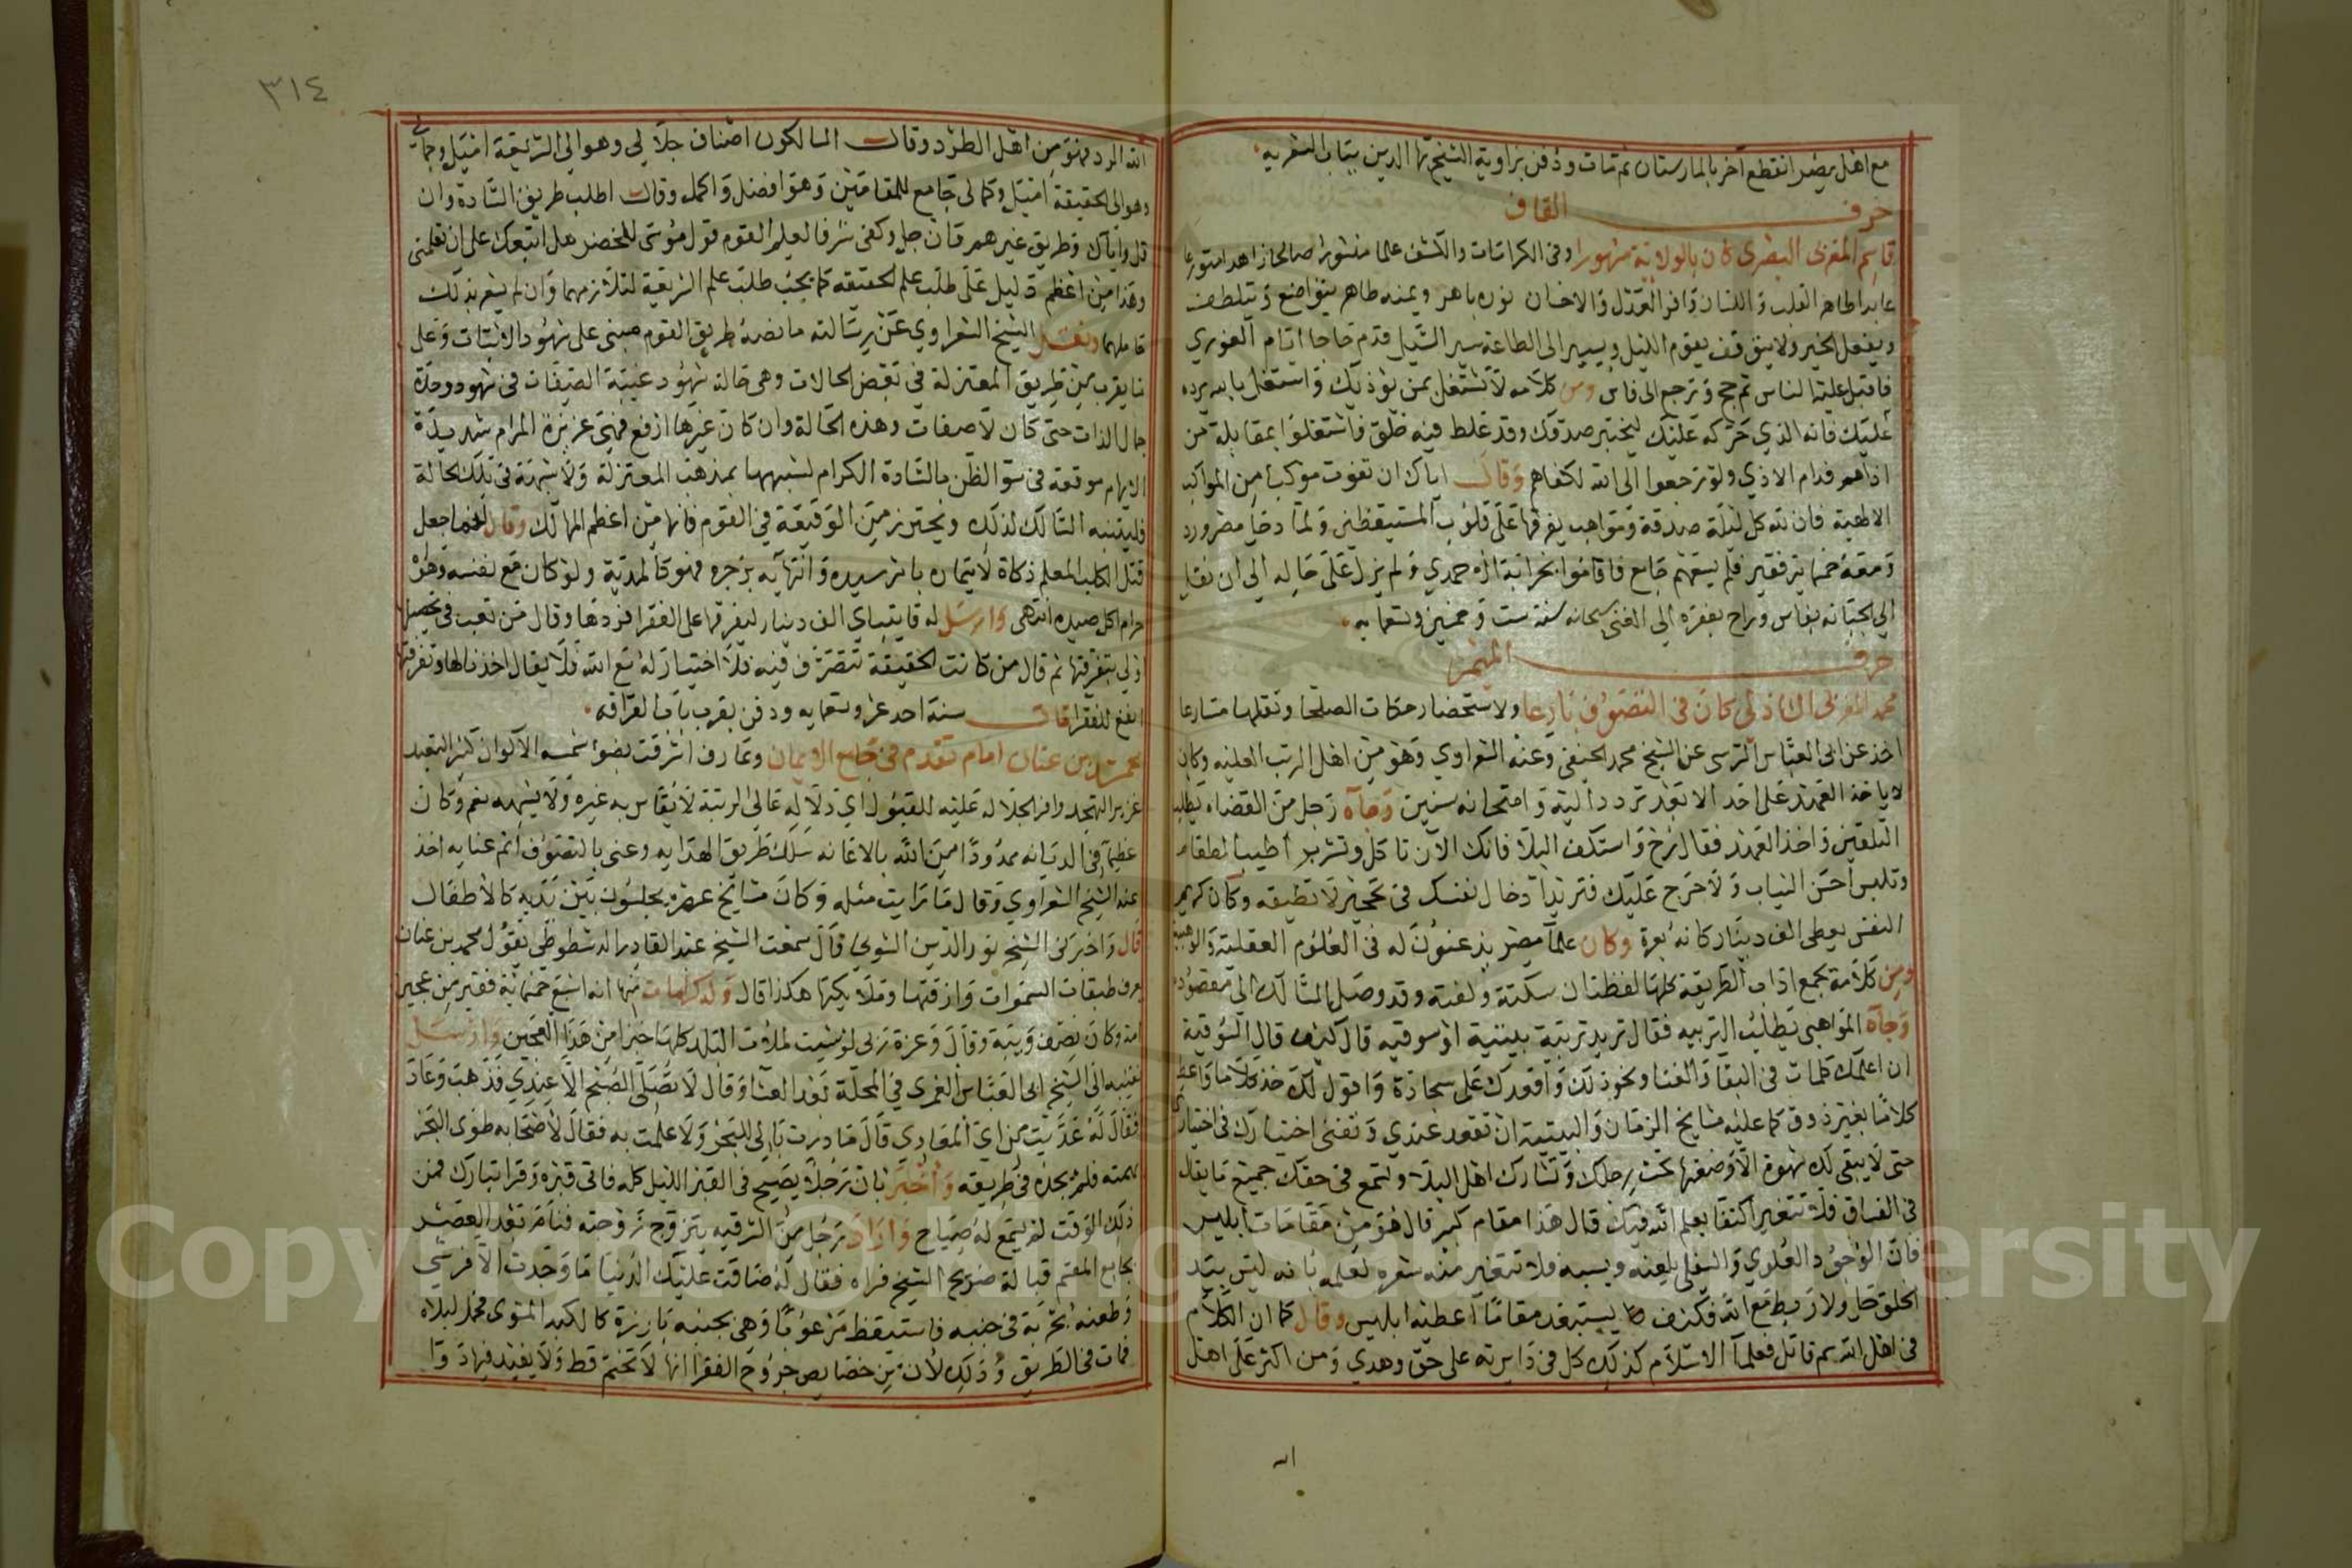 مع اهل مصر انقطع آخرا بالمارستان ثم مات ودفن بزاوية الشيخ بها الدين بباب الشعريه
حرف القاف
قاسم المغربى القصرى كان بالولاية مشهورا وفى الكرامات والكشف علما منشورا صالحا زاهدا متورعا
عابدا طاهر القلب واللسان وافر العدل والاحسان نوره باهر ويمنه ظاهر يتواضع ويتلطف
ويفعل الخير ولا يتوقف يقوم الليل ويسير الى الطاعة سير السيل قدم حاجا ايام الغوري
فاقبل عليه الناس ثم حج ورجع الى فاس ومن كلامه لا تشتغل بمن يؤذيك واشتغل بالله يرده
عليك فانه الذي حركه عليك ليختبر صدقك وقد غلط فيه خلق فاشتغلوا بمقابلة من
اذاهم فدام الاذي ولو رجعوا الى الله لكفاهم وقال اياك ان تفوت موكبا من المواكب
الالهية فان لله كل ليلة صدقة ومواهب يفرقها على قلوب المستيقظين ولما دخل مصر ورد
ومعه خمسماية فقير فلم يسعهم جامع فاقاموا بخرابة الاحمدي ولم يزل على حاله الى ان نقل
الى الجبانه بفاس وراح بفقره الى الغنى سبحانه سنة ست وخمسين وتسعمايه
حرف الميم
محمد المغربى الشاذلى كان فى التصوف بارعا ولاستحضار حكايات الصلحا ونقلها مسارعا
اخذ عن ابى العباس المرسى عن الشيخ محمد الحنفى وعنه الشعراوي وهو من اهل الرتب العليه وكان
لا ياخذ العهد على احد الا بعد تردد اليه وامتحانه سنين وجاه رجل من القضاه يطلب
التلقين واخذ العهد فقال رح واستكف البلا فانك الآن تاكل وتشرب أطيب الطعام
وتلبس أحسن الثياب ولا حرج عليك فتريد ادخال نفسك فى تحجير لا تطيقه وكان كريم
النفس يعطى الف دينار كانه بعرة وكان علما مصر يذعنون له فى العلوم العقلية والوهبية
ومن كلامه تجمع اداب الطريقة كلها لفظتان سكتة ولفتة وقد وصل السالك الى مقصوده
وجاه المواهبى يطلب التربيه فقال تريد تربية بيتية او سوقيه قال كيف قال السوقية
ان اعلمك كلمات فى البقا والفنا ونحو ذلك وأقعدك على سجادة واقول لك خذ كلاما واعط
كلامًا بغير ذوق كما عليه مشايخ الزمان والبيتية ان تقعد عندي وتفنى اختيارك فى اختياري
حتى لا يبقى لك شهوة الا وضعتها تحت رجلك وتشارك اهل البلا وتسمع فى حقك جميع ما يقال
فى الفساق فلا تتغير اكتفا بعلم الله فيك قال هذا مقام كبير قال هو من مقامات ابليس
فان الوجود العلوي والسفلى يلعنه ويسبه فلا تتغير منه شعره لعلمه بانه ليس بيد
الخلق حل ولا ربط مع الله فكيف يستبعد مقامًا اعطيه ابليس وقال كما ان الكلام
فى اهل الله سم قاتل فعلما الاسلام كذلك كل فى دايرته على حق وهدي ومن اكثر على اهل
الله
٣١٤
الله الرد فهو من اهل الطرد وقال السالكون اصناف جلالى وهو الى الشريعة اميل وجمالى
وهو الى الحقيقة اميل وكمالى جامع للمقامين وهو افضل واكمل وقال اطلب طريق السادة وان
قل واياك وطريق غيرهم وان جل وكفى شرفا لعلم القوم قول موسى للخضر هل اتبعك على ان تعلمنى
وهذا من اعظم دليل على طلب علم الحقيقة كما يجب طلب علم الشريعة لتلازمهما وان لم يشعر بذلك
حاملهما ونقل الشيخ الشعراوي عن رسالته ما نصه طريق القوم مبنى على شهود الاثبات وعلى
ما يقرب من طريق المعتزلة في بعض الحالات وهى حالة شهود غيبة الصفات فى شهود وحدة
جمال الذات حتى كان لا صفات وهذه الحالة وان كان غيرها ارفع فهى عزيزة المرام شديدة
الايهام موقعة فى سو الظن بالسادة الكرام لشبهها بمذهب المعتزلة ولا شبهة فى تلك الحالة
فليتنبه السالك لذلك ويحترز من الوقيعة في القوم فانها من اعظم المهالك وقال انما جعل
قتل الكلب المعلم ذكاة لايتماره بامر سيده وانتهآيه بزجره فهو كالمدية ولو كان مع نفسه وهواه
حرام اكل صيده انتهى وارسل له قايتباي الف دينار ليفرقها على الفقرا فردها وقال من تعب فى تحصيلها
اولى بتفرقتها ثم قال من كانت الحقيقة تتصرف فيه فلا اختيار له مع الله فلا يقال اخذنا لها وتفرقتها
انفع للفقرا مات سنة احد عشر وتسعمايه ودفن بقرب باب القرافه
محمد بن عنان امام تقدم فى جامع الايمان وعارف اشرقت بضوء شمسه الاكوان كثير التعبد
غزير التهجد وافر الجلاله عليه للقبول اي دلاله عالى الرتبة لا يقاس به غيره ولا يشبهه نعم وكان
عظيما فى الديانه ممدودًا من الله بالاعانه سلك طريق الهدايه وعنى بالتصوف أتم عنايه اخذ
عنه الشيخ الشعراوي وقال ما رايت مثله وكان مشايخ عصره يجلسون بين يديه كالاطفال
قال واخبرنى الشيخ نور الدين الشونى قال سمعت الشيخ عبد القادر الدشطوطى يقول محمد بن عنان
يعرف طبقات السموات وازقتها وملايكتها هكذا قال وله كرامات منها انه اشبع خمسماية فقير من عجين
امه وكان نصف ويبة وقال وعزة ربى لو شيت لملأت البلد كلها خبزا من هذا العجين وارسل
نقيبه الى الشيخ ابى العباس الغمرى في المحلة بعد العشا وقال لا تصلى الصبح الا عندي فذهب وعاد
فقال له عديت من اي المعادي قال ما دريت بالى للبحر ولا علمت به فقال لاصحابه طوى البحر
بهمته فلم يجده فى طريقه وأخبر بان رجلا يصيح فى القبر الليل كله فاتى قبره وقرا تبارك فمن
ذلك الوقت لم يسمع له صياح واراد رجل من الشرقيه يتزوج زوجته فنام بعد العصر
بجامع المقسم قبالة ضريح الشيخ فراه فقال له ضاقت عليك الدنيا ما وجدت الا فرشي
وطعنه بحربة فى جنبه فاستيقظ مرعوبًا وهى بجنبه بارزة كالكبد المشوى فحمل لبلاه
فمات فى الطريق وذلك لان من خصايص جروح الفقرا انها لا تختم قط ولا يفيد فيها دوا